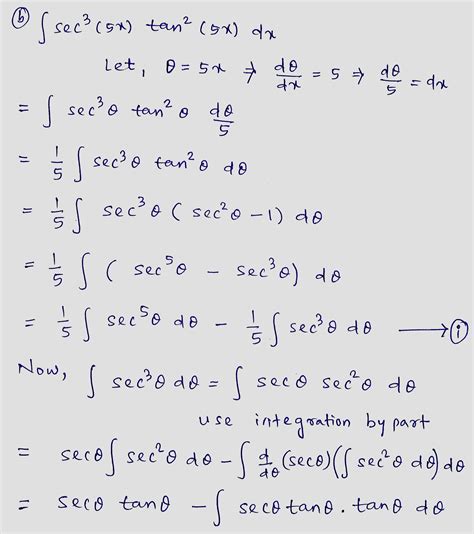 ⓑ ∫ sec³(5x) tan²(5x) dx
Let, θ = 5x ⇒ dθ/dx = 5 ⇒ dθ/5 = dx
= ∫ sec³θ tan²θ dθ/5
= 1/5 ∫ sec³θ tan²θ dθ
= 1/5 ∫ sec³θ (sec²θ −1) dθ
= 1/5 ∫ (sec⁵θ − sec³θ) dθ
= 1/5 ∫ sec⁵θ dθ − 1/5 ∫ sec³θ dθ ⟶ ⓘ
Now, ∫ sec³θ dθ = ∫ secθ sec²θ dθ
use integration by part
= secθ ∫ sec²θ dθ − ∫ d/dθ (secθ)(∫ sec²θ dθ) dθ
= secθ tanθ − ∫ secθ tanθ . tanθ dθ